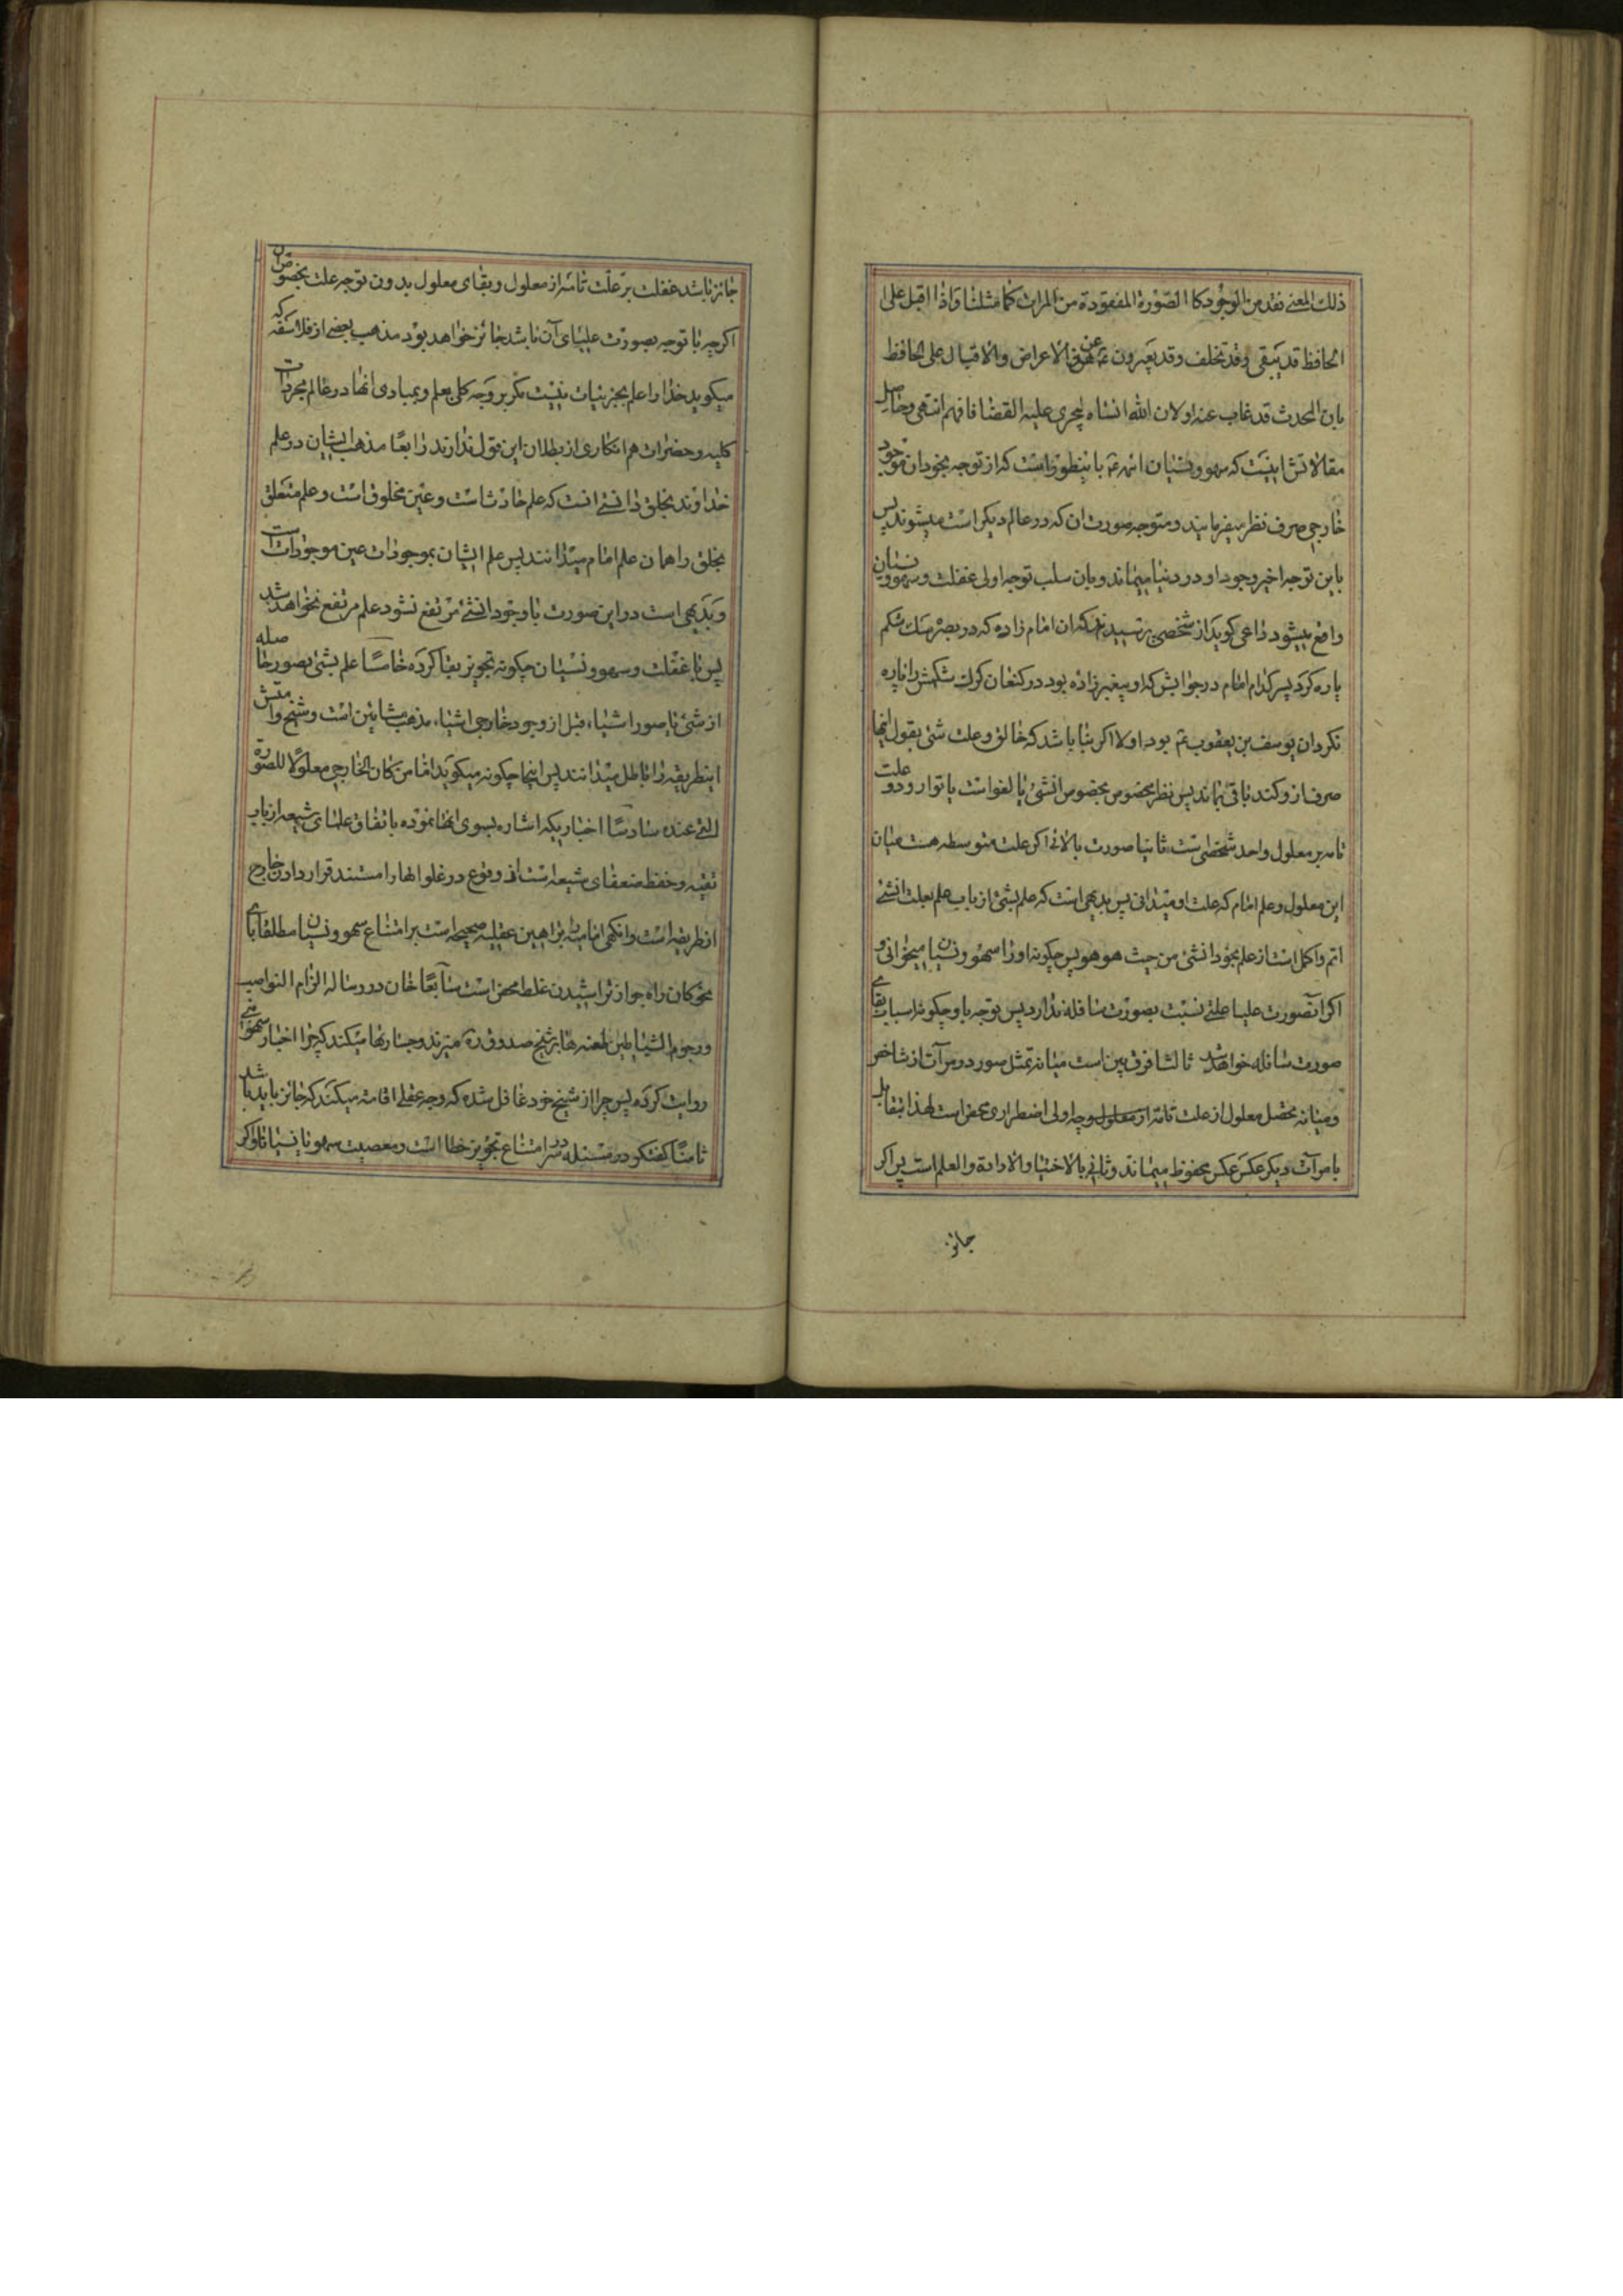 ذلك المعنی نفد من الوجود كا الصورة المفقودة من المرات كما مثلنا واذا اقبل علی
الحافظ قد یبقی وقد تخلف وقد یعبرون عم عن الاعراض والاقبال علی الحافظ
بان المحدث قد غاب عنه اولان الله انساه لیجری علیه القضا فافهم انتهی وحاصل
مقالاتش اینست که سهو و نسیان ائمه عم باینطور است که از توجه بخود ان موجود
خارجی صرف نظر میفرمایند و متوجه صورت ان که در عالم دیگر است میشوند پس
باین توجه اخیر وجود او در دنیا میماند و بان سلب توجه اولی غفلت و سهو و نسیان
واقع میشود داعی کوید از شخصی پرسیدند که ان امام زاده که در بصره سك شکم
پاره کرد پسر کدام امام در جوابش که او پیغمبر زاده بود در کنعان کرك شکمش را پاره
نکرد ان یوسف بن یعقوب عم بود اولا اکر بنا باشد که خالق و علت شئ بقول اینها
صرف از و کند باقی نماند پس نظر بخصوص بخصوص انشئ یا لغو است یا توارد دو علت
تامه بر معلول واحد شخصی است ثانیا صورت بالائی اکر علت متوسطه هست میان
این معلول و علم امام که علت او میدانی پس بدیهی است که علم بشئ از باب علم بعلت انشئ
اتم و اکمل است از علم بخود انشئ من حیث هو هو پس چکونه او را سهو و نسیان میخوانی و
اکر انصورت علیا علتی نسبت بصورت سافله ندارد پس توجه باو چکونه اسباب بقای
صورت سافله خواهد شد ثالثا فرق بین است میانه تمثل صور در مرآت از شاخص
و میانه تحصل معلول از علت تامه از معلول وچه اولی اضطراری محض است لهذا بتقابل
با مرآت دیکر عکس عکس محفوظ میماند و ثانی بالاختیار والارادة والعلم است پس اکر
جائز
جائز باشد غفلت بر علت تامه از معلول و بقای معلول بدون توجه علت بخصوص ان
اکرچه با توجه بصورت علیای آن باشد جائز خواهد بود مذهب بعضی از فلاسفه که
میکوید خدا را علم بجزئیات نیست مکر بر وجه کلی بعلم و بمبادی انها در عالم مجردات
کلیه و حضرات هم انکاری از بطلان این قول ندارند رابعا مذهب ایشان در علم
خداوند بخلق دانستی انست که علم حادث است و عین مخلوق است و علم متعلق
بخلق را همان علم امام میدانند پس علم ایشان بموجودات عین موجودات است
و بدیهی است در این صورت تا وجود انشئ مرتفع نشود علم مرتفع نخواهد شد
پس با غفلت و سهو و نسیان چکونه تجویز بقا کرده خامسا علم بشئ بصور حاصله
از شئ یا صور اشیاء قبل از وجود خارجی اشیاء مذهب مشایین است و شیخ و امتش
اینطریقه را باطل میدانند پس اینجا چکونه میکوید اما من کان الخارجی معلولا للصورة
التی عنده سادسا اخباریکه اشاره بسوی انها نموده باتفاق علمای شیعه از باب
تقیه و حفظ ضعفای شیعه است از وقوع در غلو انها را مستند قرار دادن خارج
از طریقه است وانکهی امامیه براهین عقلیه صحیحه است بر امتناع سهو و نسیان مطلقا با
نحو کان راه جواز تراشیدن غلط محض است سابعا خان در رساله الزام النواصب
و رجوم الشیاطین طعنه ها بر شیخ صدوق ره میزند و جسارتها میکند که چرا اخبار سهو
روایت کرده پس چرا از شیخ خود غافل شده که وجه عقلی اقامه میکند که جائز باید باشد
ثامنا کفتکو در مسئله در امتناع تجویز خطا است و معصیت سهو نا نسیانا و اکر